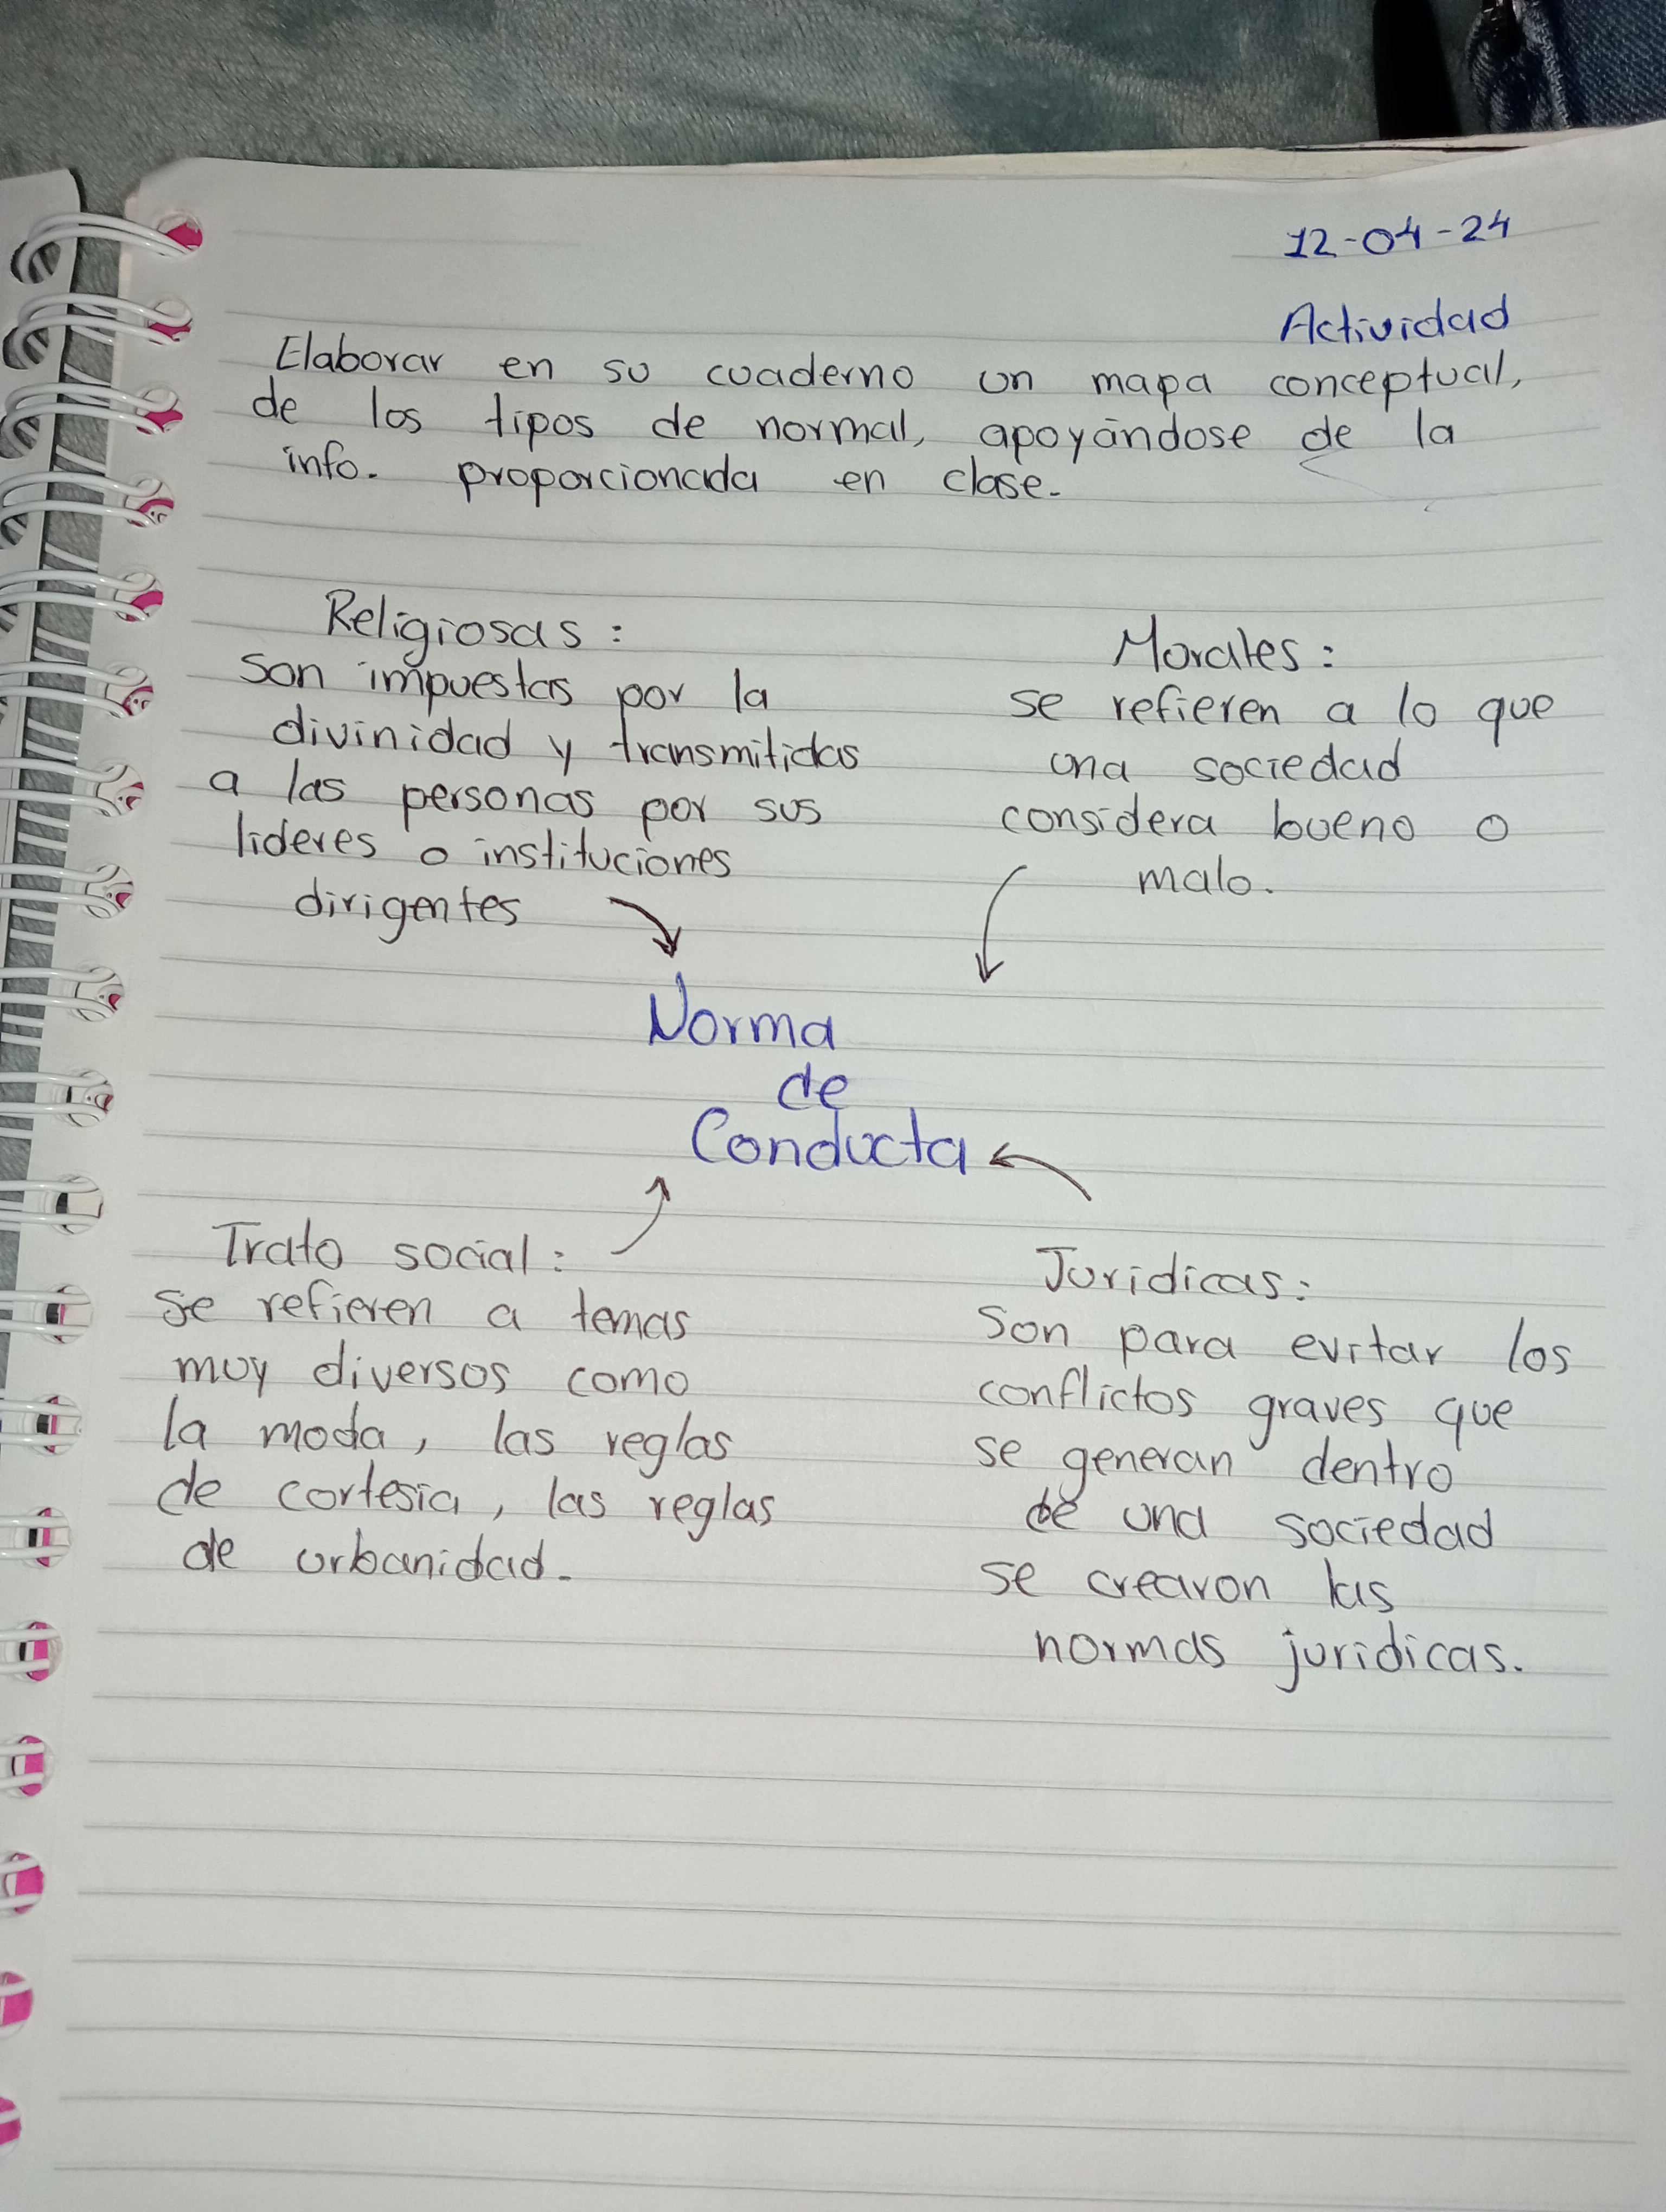 12-04-24
Actividad
Elaborar en su cuaderno un mapa conceptual,
de los tipos de normal, apoyándose de la
info. proporcionada en clase.
Religiosas:
Son impuestas por la
divinidad y transmitidas
a las personas por sus
lideres o instituciones
dirigentes
Morales:
se refieren a lo que
una sociedad
considera bueno o
malo.
Norma
de
Conducta
Trato social:
se refieren a temas
muy diversos como
la moda, las reglas
de cortesia, las reglas
de urbanidad.
Juridicas:
Son para evitar los
conflictos graves que
se generan dentro
de una sociedad
se crearon las
normas juridicas.